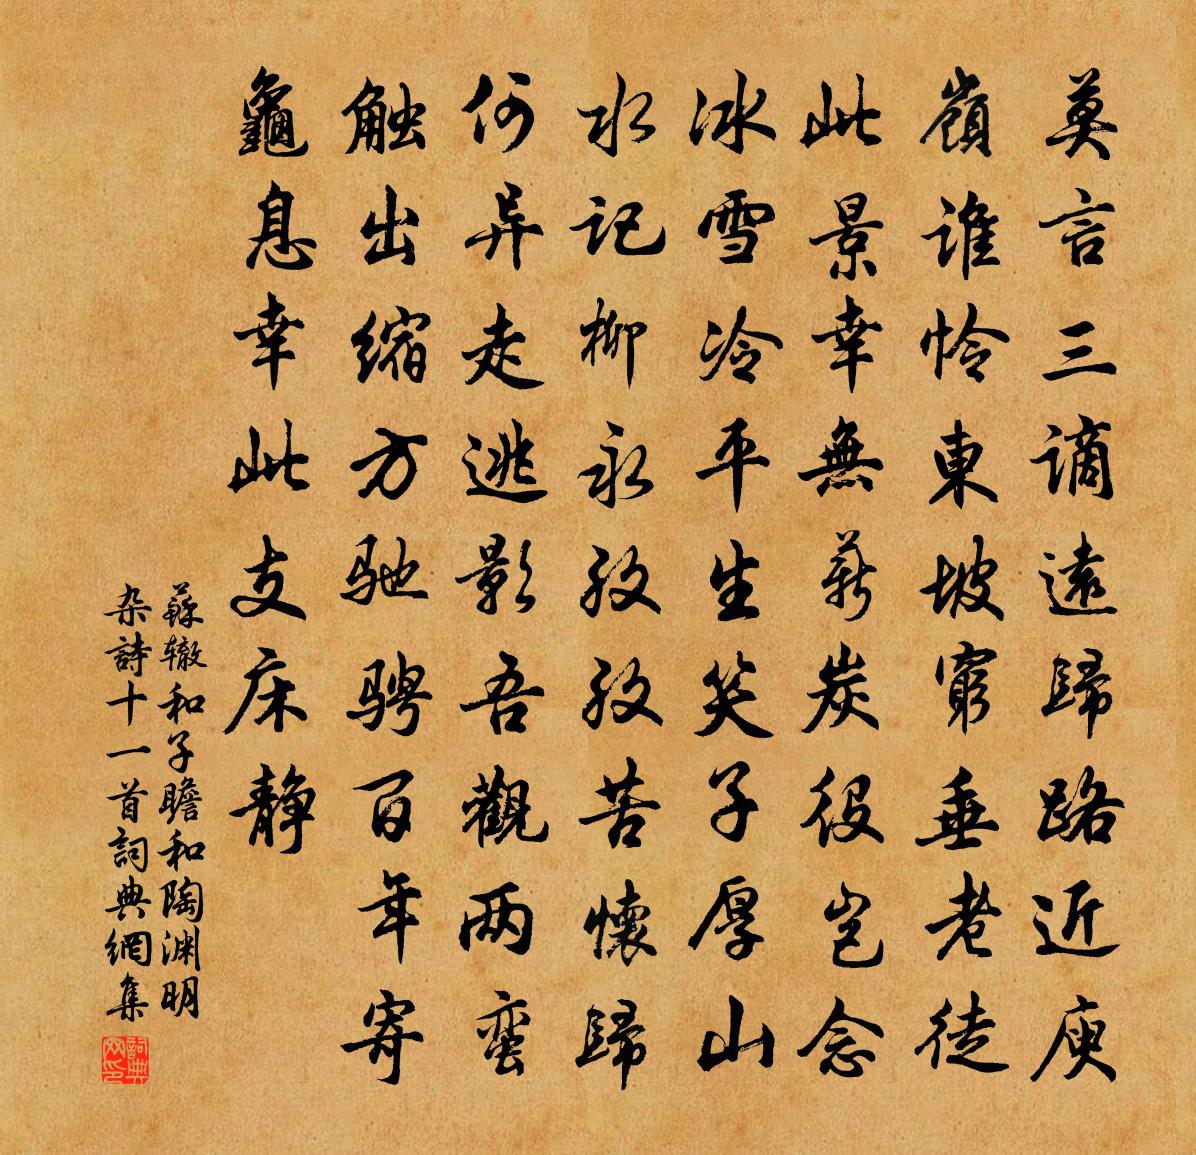 莫言三谪遠歸路近庾
嶺谁怜東坡窮垂老徒
此景幸無薪炭役岂念
冰雪冷平生笑子厚山
水记柳永孜孜苦懷歸
何异走逃影吾觀两蛮
触出缩方驰骋百年寄
龜息幸此支床静
蘇辙和子瞻和陶渊明
杂詩十一首詞典網集
詞典
网印